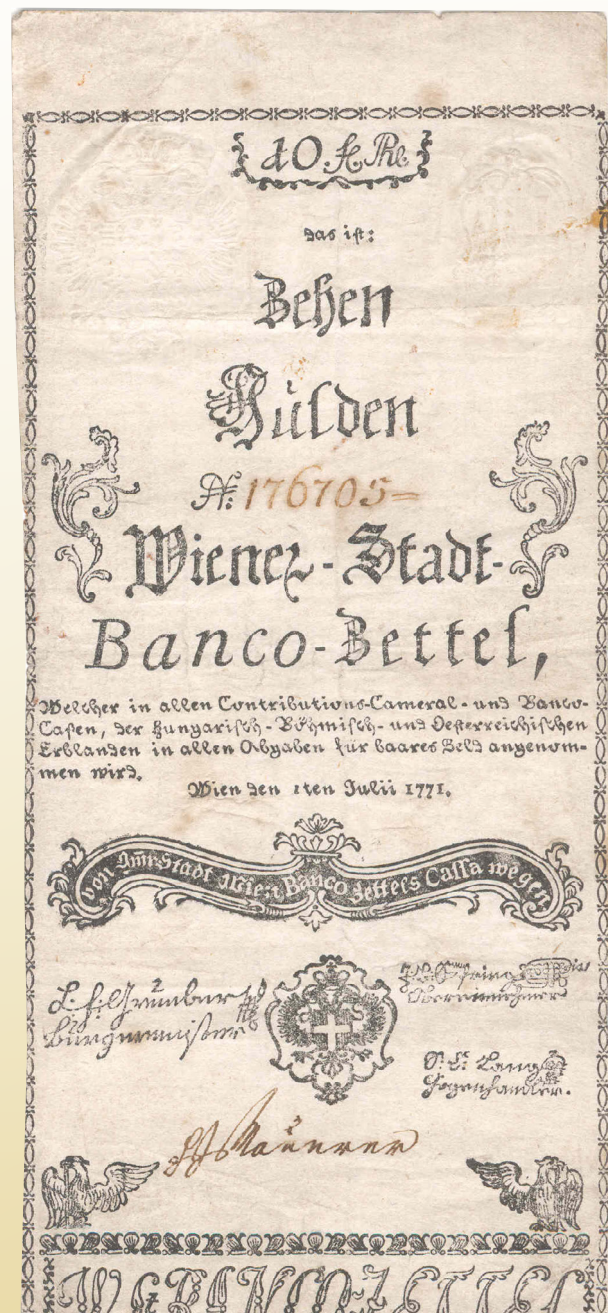 10. fl. Rh.
das ist:
Zehen
Gulden
N: 176705
Wiener-Stadt-
Banco-Zettel,
Welcher in allen Contributions-Cameral- und Banco-
Cassen, der Hungarisch-Böhmisch- und Oesterreichischen
Erblanden in allen Abgaben für baares Geld angenom-
men wird.
Wien den 1ten Julii 1771.
Von Stadt Wien Banco Zettels Cassa wegen
Burgermeister
Obereinnehmer
Lang